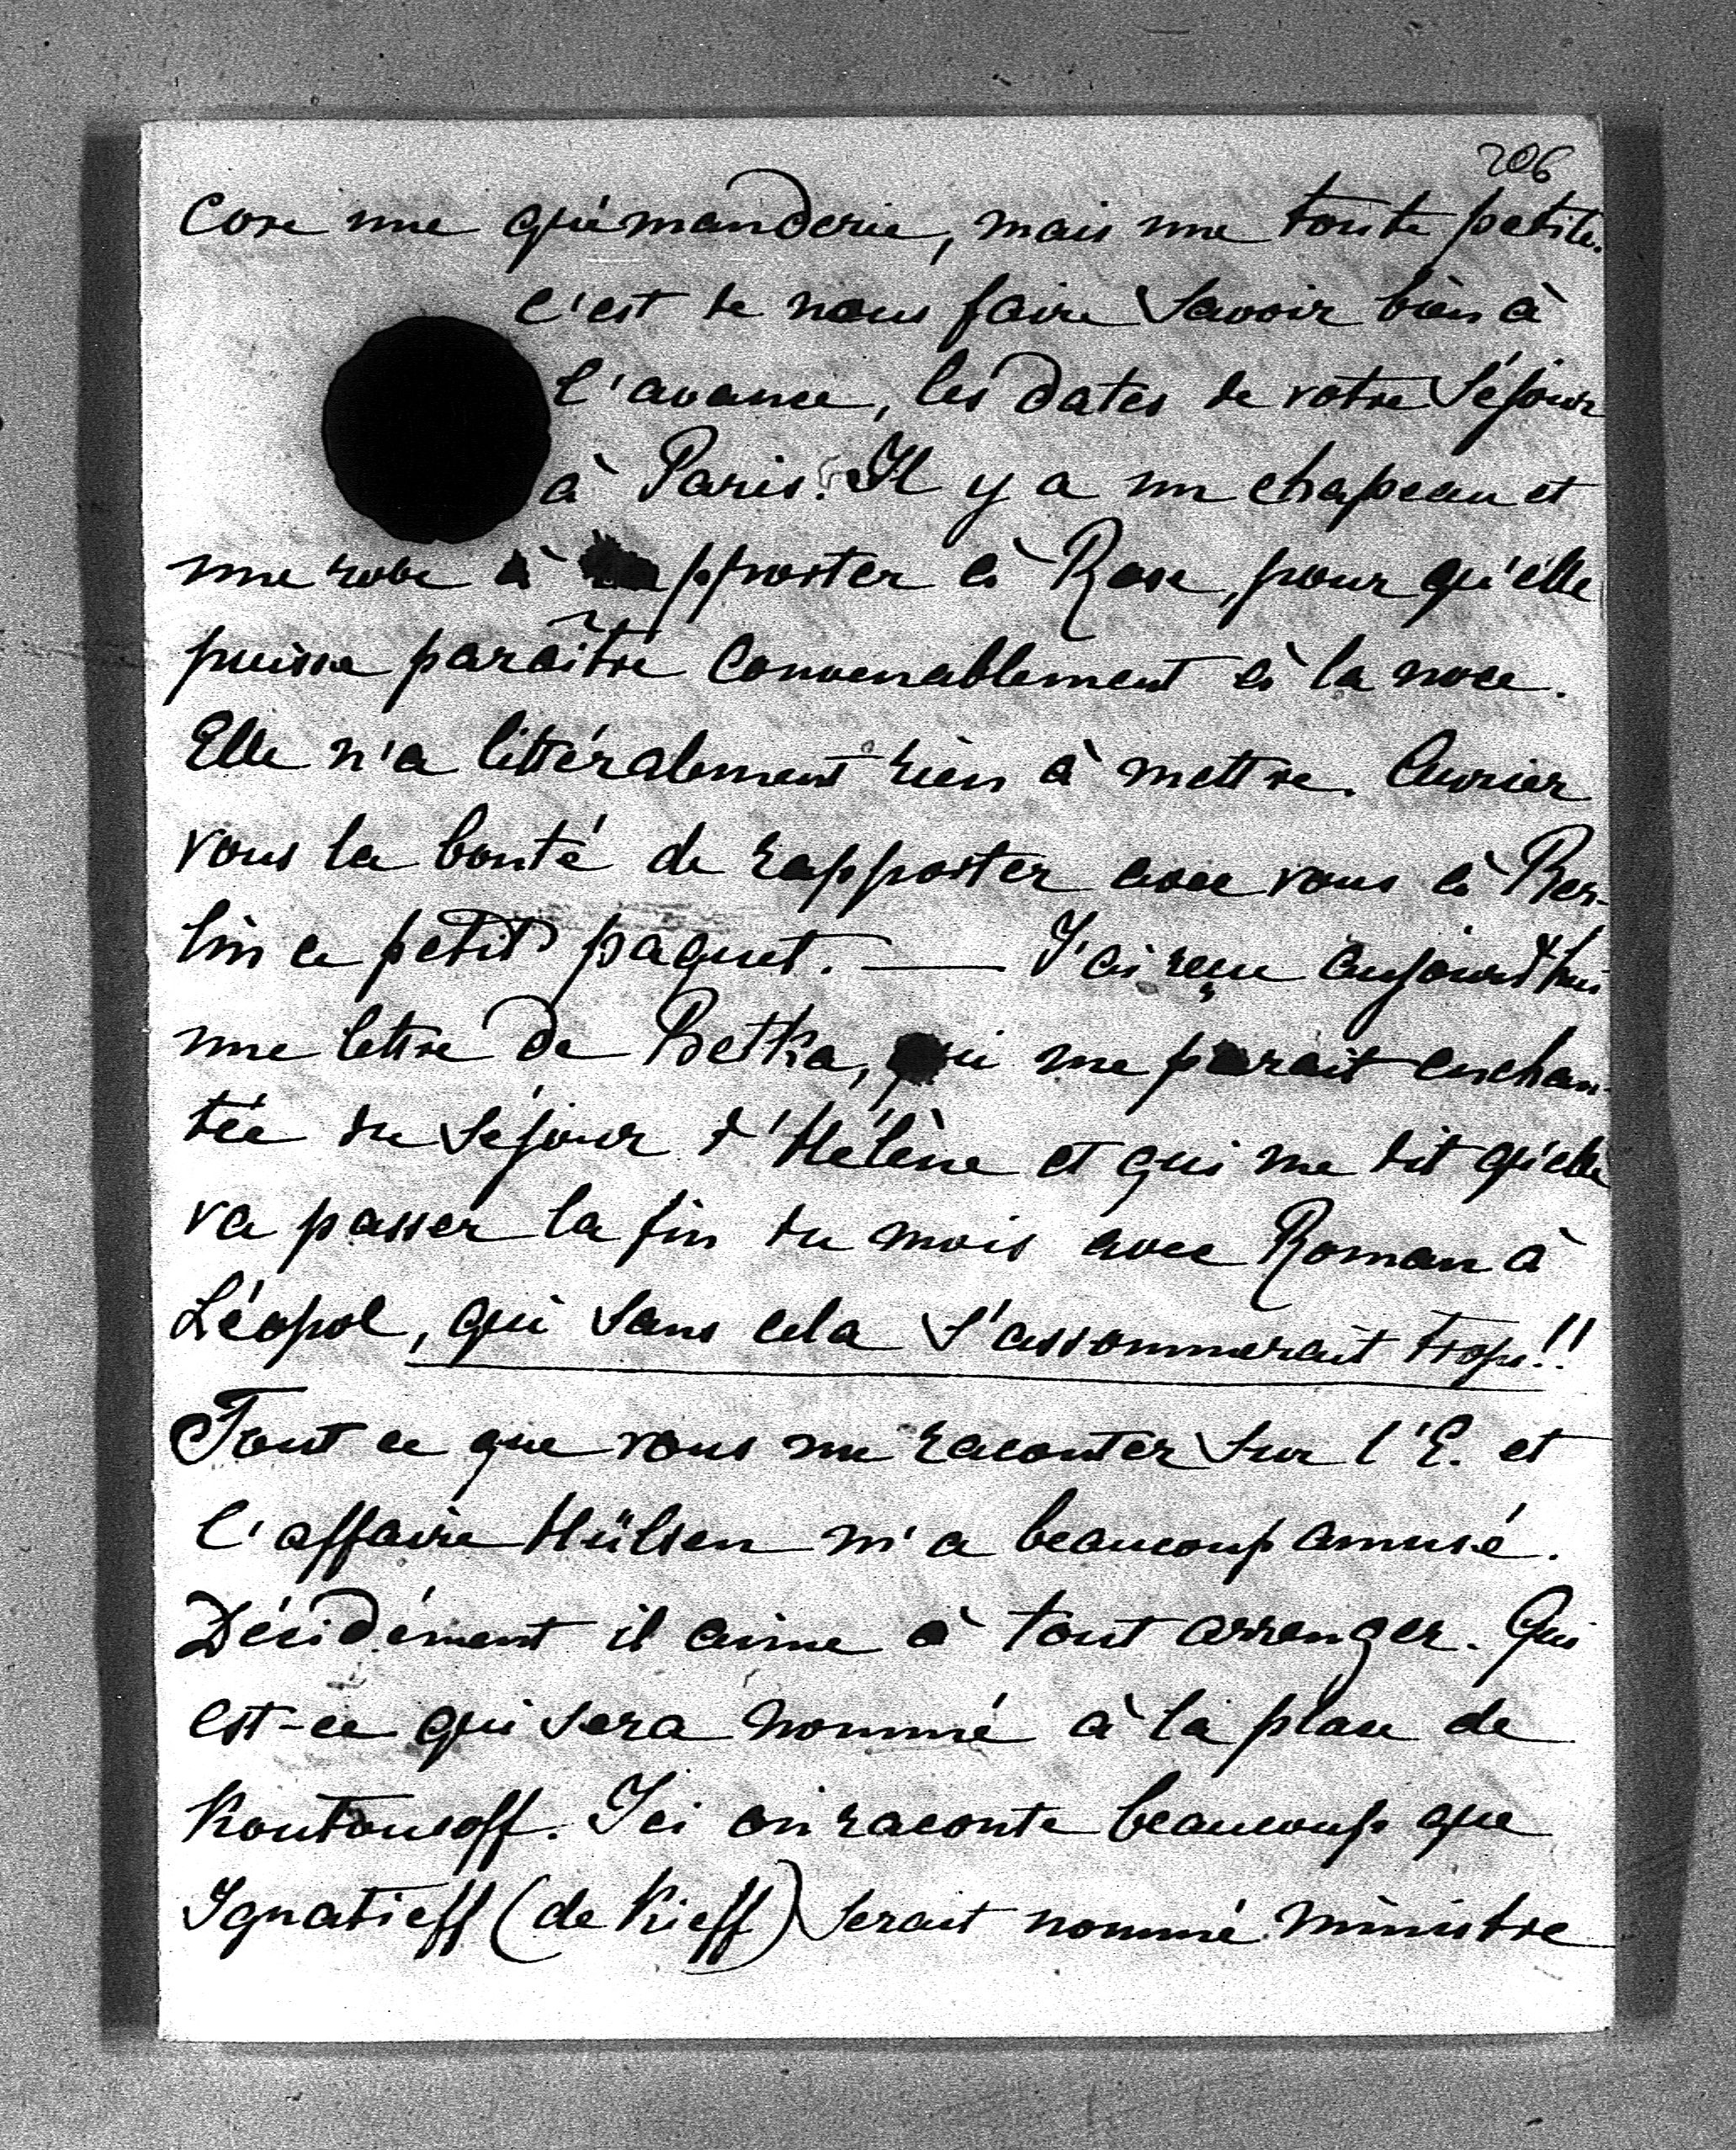 206
core une quémanderie, mais une toute petite.
C'est de nous faire savoir bien à
l'avance, les dates de votre séjour
à Paris. Il y a un chapeau et
une robe à apporter à Rose, pour qu'elle
puisse paraître convenablement à la noce.
Elle n'a littéralement rien à mettre. Auriez
vous la bonté de rapporter avec vous à Ber-
lin ce petit paquet. — J'ai reçu aujourd'hui
une lettre de Betka, qui me parait enchan-
tée du séjour d'Hélène et qui me dit qu'elle
va passer la fin du mois avec Roman à
Léopol, qui sans cela s'assommerait trop!!
Tout ce que vous me racontez sur l'E. et
l'affaire Hülsen m'a beaucoup amusé.
Décidément il aime à tout arranger. Qui
est-ce qui sera nommé à la place de
Koutousoff. Ici on raconte beaucoup que
Ignatieff (de Kieff) serait nommé ministre